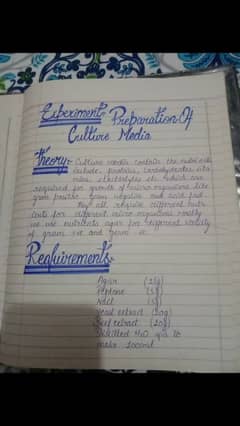 Experiment: Preparation Of
Culture Media
Theory:- Culture media contain the nutrients
include, proteins, carbohydrates, vita
mins, electrolytes etc. which are
required for growth of micro organisms like
gram positive, gram negative and acid fast
They all require different nutri
ents for different micro organisms mostly
we use nutrients agar for different variety
of gram +ve and gram -ve.
Requirements:-
Agar (15g)
Peptone (5g)
Nacl (5g)
Yeast extract
Beef extract
Distilled H2O upto to
make 1000ml